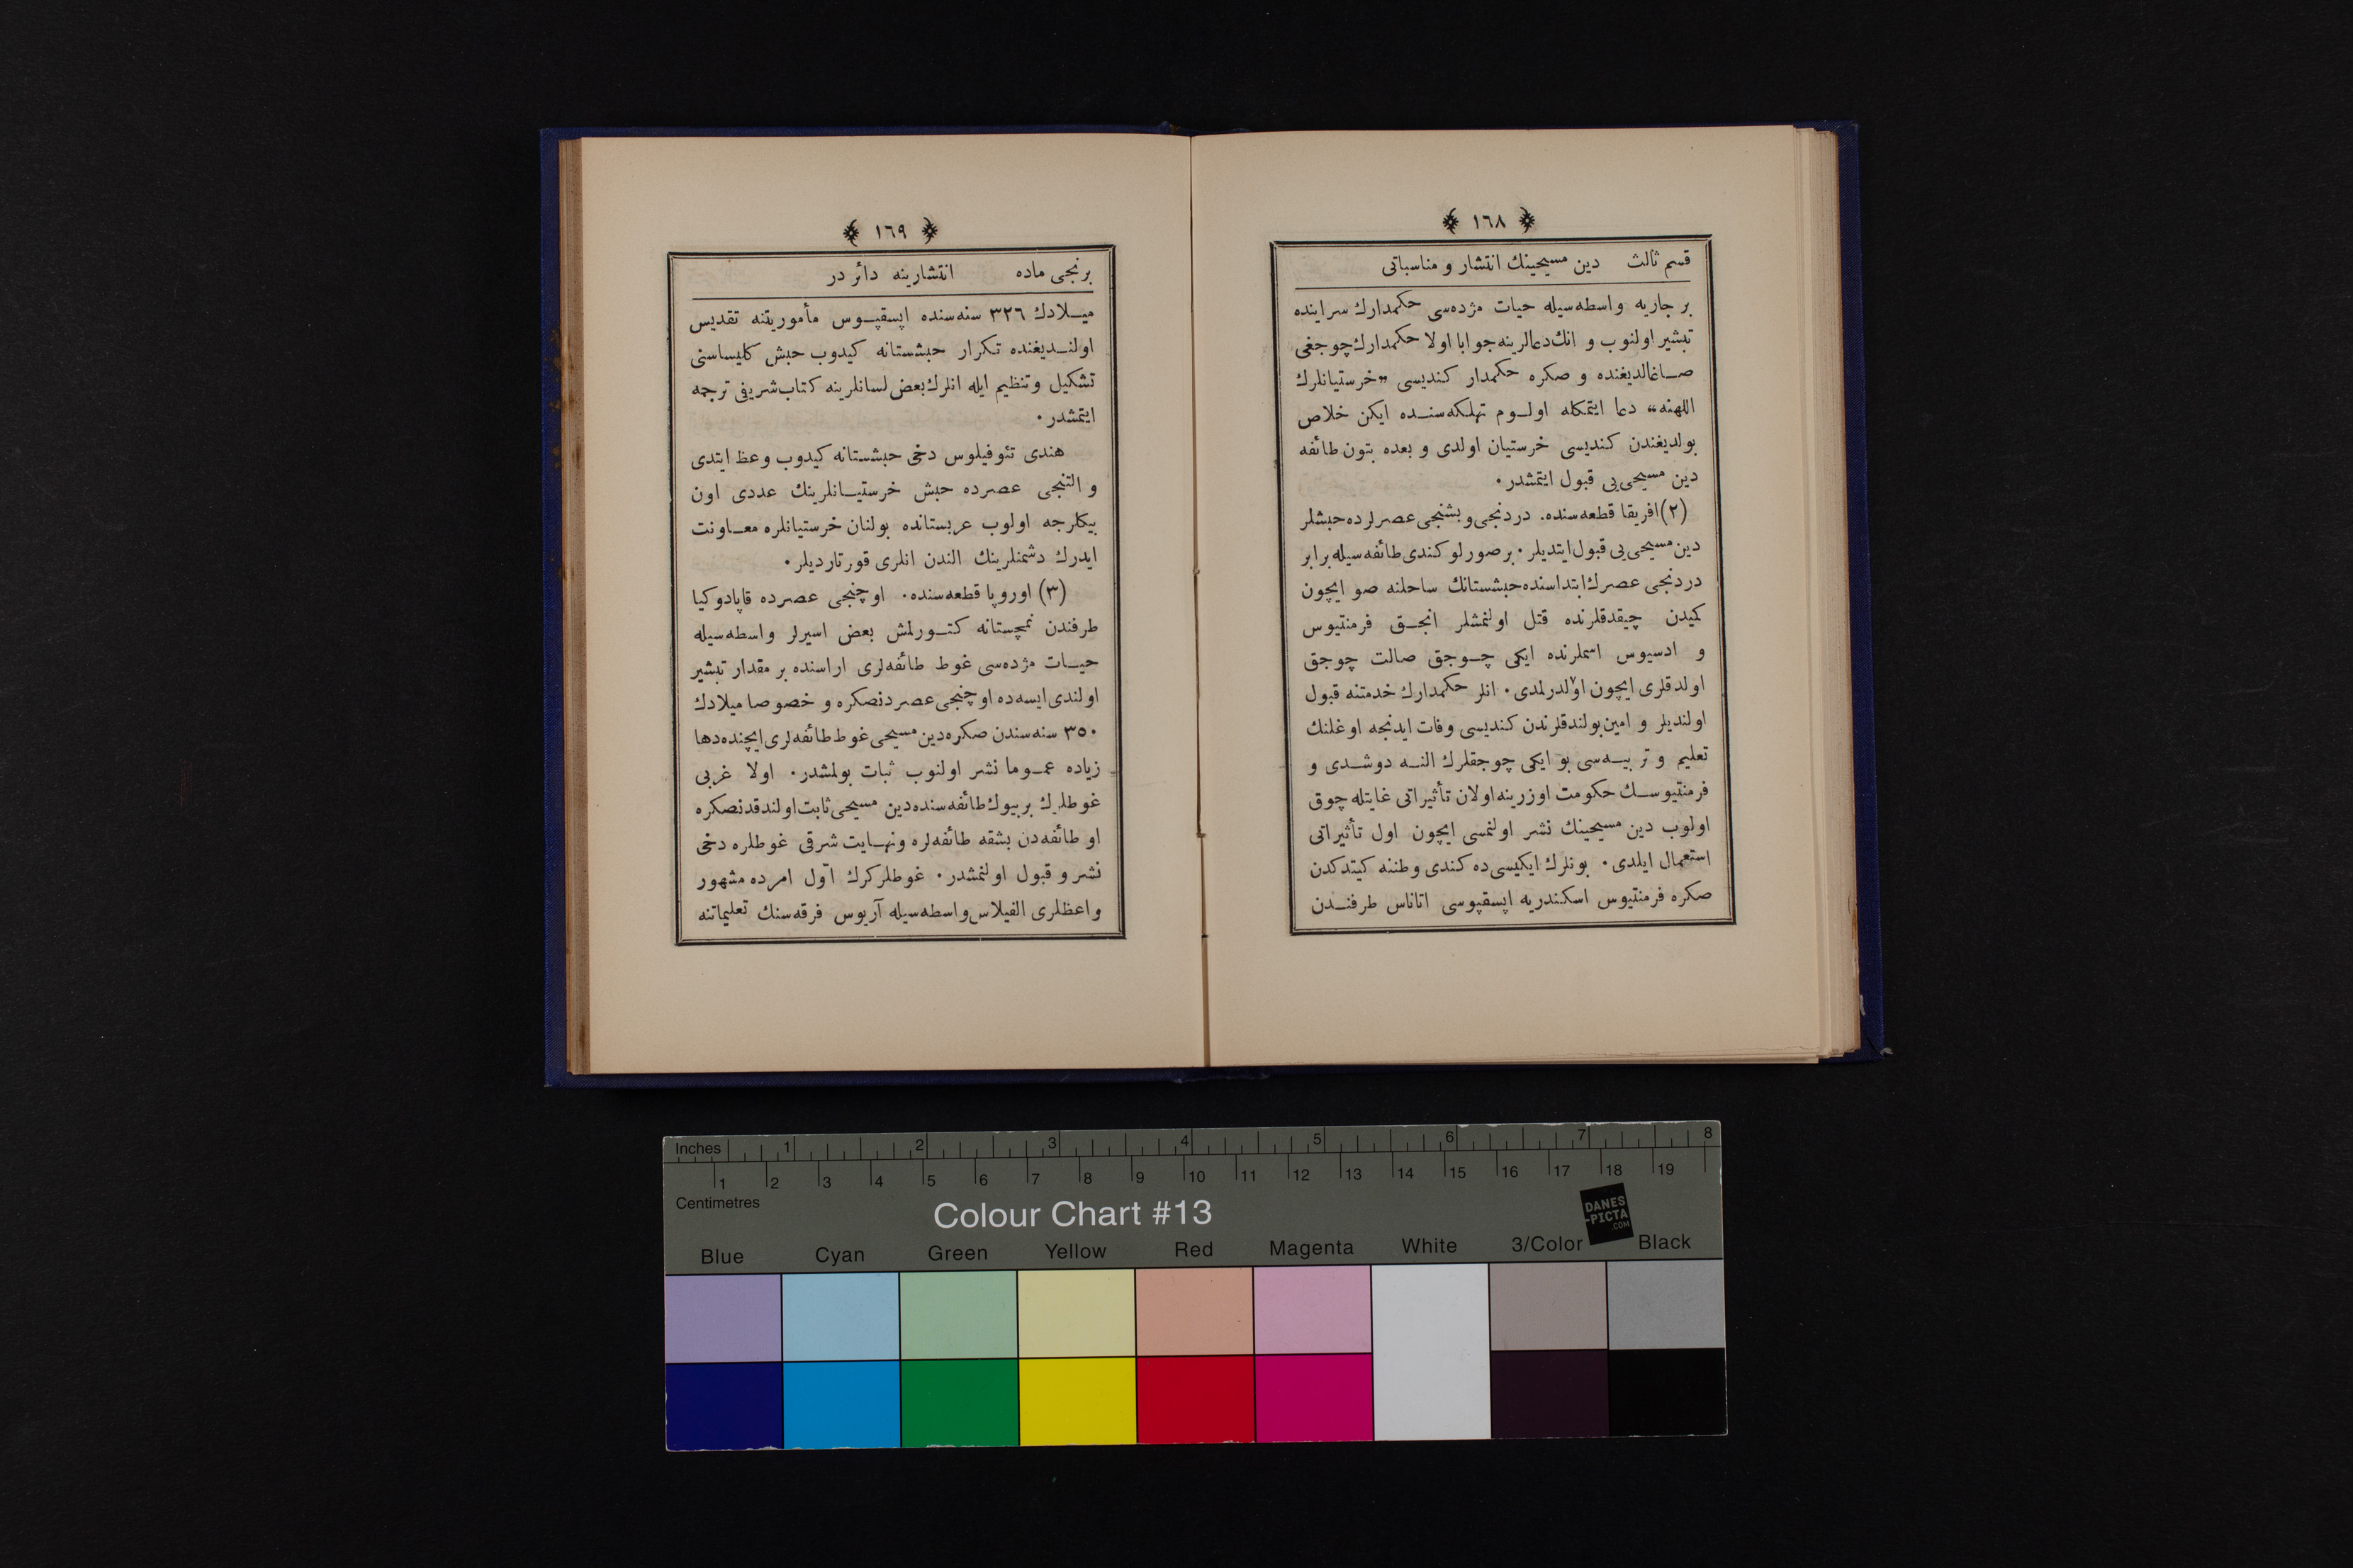 ﴿ ١٦٨ ﴾
قسم ثالث دين مسيحينك انتشار و مناسباتى
بر جاريه واسطه‌سيله حيات مژده‌سى حكمدارك سراينده
تبشير اولنوب و انك دعالرينه جوابا اولا حكمدارك چوجغى
صاغالديغنده و صكره حكمدار كنديسى «خرستيانلرك
اللهنه» دعا ايتمكله اولوم تهلكه‌سنده ايكن خلاص
بولديغندن كنديسى خرستيان اولدى و بعده بتون طائفه
دين مسيحى‌يى قبول ايتمشدر.
(٢) افريقا قطعه‌سنده. دردنجى و بشنجى عصرلرده حبشلر
دين مسيحى‌يى قبول ايتديلر. بر صورلو كندى طائفه‌سيله برابر
دردنجى عصرك ابتداسنده حبشستانك ساحلنه صو ايچون
كميدن چيقدقلرنده قتل اولنمشلر انجق فرمنتيوس
و ادسيوس اسملرنده ايكى چوجق صالت چوجق
اولدقلرى ايچون اولدرلمدى. انلر حكمدارك خدمتنه قبول
اولنديلر و امين بولندقلرندن كنديسى وفات ايدنجه اوغلنك
تعليم و تربيه‌سى بو ايكى چوجقلرك النه دوشدى و
فرمنتيوسك حكومت اوزرينه اولان تأثيراتى غايتله چوق
اولوب دين مسيحينك نشر اولنمسى ايچون اول تأثيراتى
استعمال ايلدى. بونلرك ايكيسى‌ده كندى وطننه كيتدكدن
صكره فرمنتيوس اسكندريه اپسقپوسى اتاناس طرفندن
﴿ ١٦٩ ﴾
برنجى ماده انتشارينه دائر در
ميلادك ٣٢٦ سنه‌سنده اپسقپوس مأموريتنه تقديس
اولنديغنده تكرار حبشستانه كيدوب حبش كليساسنى
تشكيل و تنظيم ايله انلرك بعض لسانلرينه كتاب شريفى ترجمه
ايتمشدر.
هندى تئوفيلوس دخى حبشستانه كيدوب وعظ ايتدى
و التنجى عصرده حبش خرستيانلرينك عددى اون
بيكلرجه اولوب عربستانده بولنان خرستيانلره معاونت
ايدرك دشمنلرينك الندن انلرى قورتارديلر.
(٣) اوروپا قطعه‌سنده. اوچنجى عصرده قاپادوكيا
طرفندن نمچستانه كتورلمش بعض اسيرلر واسطه‌سيله
حيات مژده‌سى غوط طائفه‌لرى اراسنده بر مقدار تبشير
اولندى ايسه‌ده اوچنجى عصردنصكره و خصوصا ميلادك
٣٥٠ سنه‌سندن صكره دين مسيحى غوط طائفه‌لرى ايچنده دها
زياده عموما نشر اولنوب ثبات بولمشدر. اولا غربى
غوطلرك بر بيوك طائفه‌سنده دين مسيحى ثابت اولندقدنصكره
او طائفه‌دن بشقه طائفه‌لره و نهايت شرقى غوطلره دخى
نشر و قبول اولنمشدر. غوطلر كرك اول امرده مشهور
واعظلرى الفيلاس واسطه‌سيله آريوس فرقه‌سنك تعليماتنه
Inches 1 2 3 4 5 6 7 8
1 2 3 4 5 6 7 8 9 10 11 12 13 14 15 16 17 18 19
Centimetres
Colour Chart #13
DANES
-PICTA
.COM
Blue Cyan Green Yellow Red Magenta White 3/Color Black